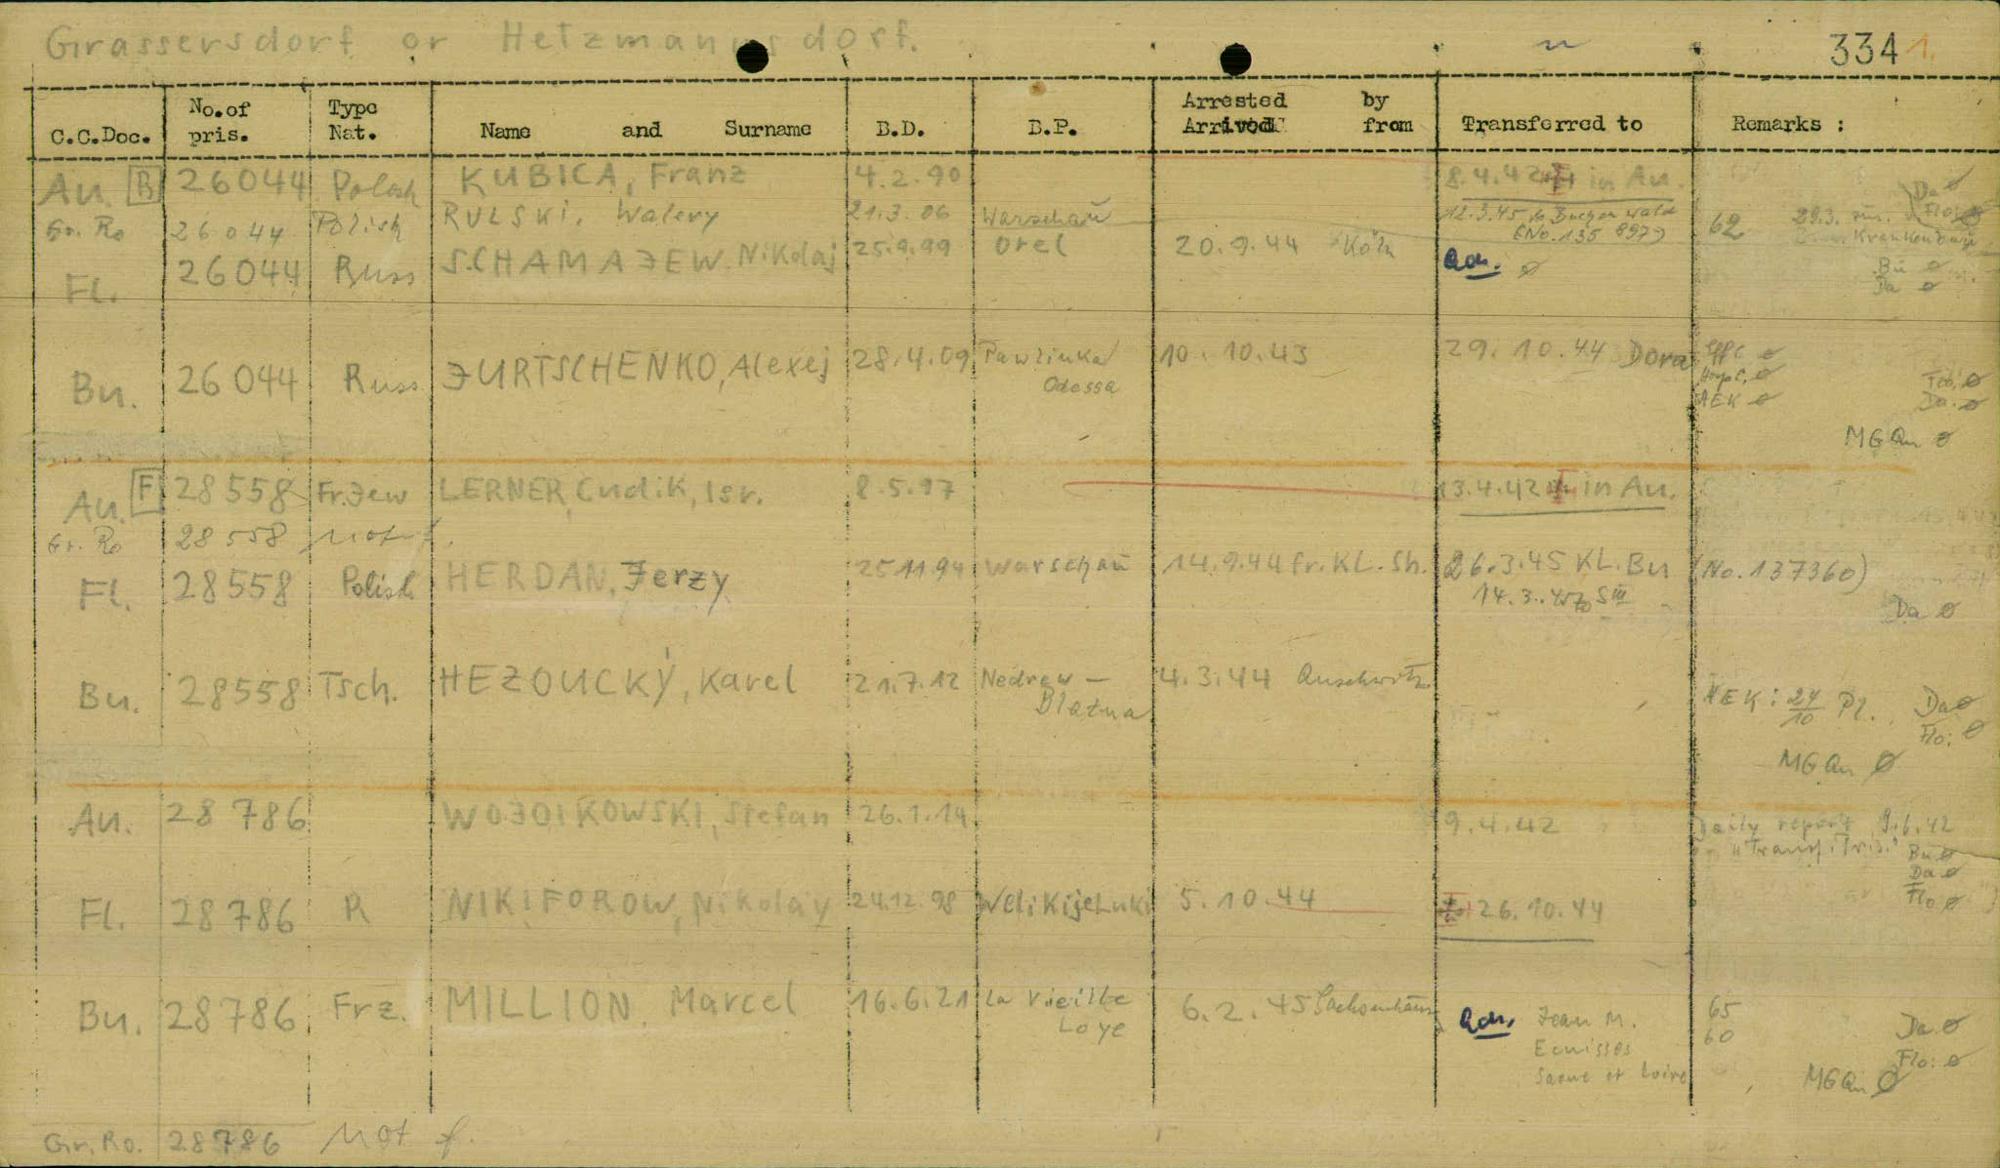 Grassersdorf or Hetzmannsdorf.
334 1.
C.C.Doc. No.of pris. Type Nat. Name and Surname B.D. B.P. Arrested by Arrived from Transferred to Remarks :
Au. B 26044 Polish KUBICA, Franz 4.2.90 8.4.42 in Au. Da ø
Gr. Ro 26044 Polish RULSKI, Walery 21.3.06 Warschau 12.3.45 to Buchenwald 62 29.3. Flo: ø
(No. 135 897) Krankenbau
Fl. 26044 Russ SCHAMAJEW Nikolaj 25.9.99 Orel 20.9.44 Köln Adr. ø Bu ø
Da ø
Bu. 26044 Russ JURTSCHENKO, Alexej 28.4.09 Pawlinka 10.10.43 29.10.44 Dora Effc ø
Odessa Hosp.C. ø Flo: ø
AEK ø Da. ø
MGQu ø
Au. F 28558 Fr.Jew LERNER, Cudik, Isr. 8.5.97 13.4.42 in Au.
Gr. Ro 28558 Not f.
Fl. 28558 Polish HERDAN, Jerzy 25.11.94 Warschau 14.9.44 fr. KL. Sh. 26.3.45 KL. Bu (No. 137360)
14.3.45 to S III Da ø
Bu. 28558 Tsch. HEZOUCKÝ, Karel 21.7.12 Nedrew – 4.3.44 Auschwitz AEK: 24/10 Pl. Da ø
Blatna Flo: ø
MGQu ø
Au. 28786 WOJCIKOWSKI, Stefan 26.1.14 9.4.42 Daily report 9.6.42
"Transf. Bu ø
Da ø
Fl. 28786 R NIKIFOROW, Nikolay 24.12.98 WelikijeLuki 5.10.44 26.10.44 Flo ø
Bu. 28786 Frz. MILLION, Marcel 16.6.21 La Vieille 6.2.45 Sachsenhausen Adr. Jean M. 65
Loye Ecuisses 60 Da. ø
Saone et Loire Flo: ø
MGQu ø
Gr. Ro. 28786 Not f.